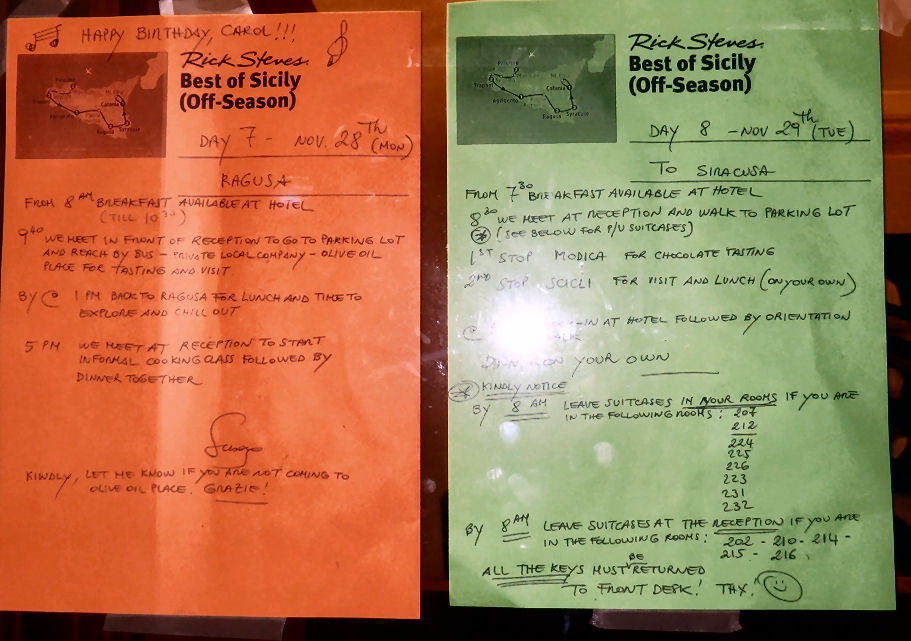 HAPPY BIRTHDAY, CAROL!!!
Rick Steves
Best of Sicily
(Off-Season)
Palermo
Trapani
Agrigento
Catania
Ragusa
Syracuse
DAY 7 - NOV. 28TH (MON)
RAGUSA
FROM 8AM BREAKFAST AVAILABLE AT HOTEL
(TILL 10 30)
9 40 WE MEET IN FRONT OF RECEPTION TO GO TO PARKING LOT
AND REACH BY BUS - PRIVATE LOCAL COMPANY - OLIVE OIL
PLACE FOR TASTING AND VISIT.
BY @ 1 PM BACK TO RAGUSA FOR LUNCH AND TIME TO
EXPLORE AND CHILL OUT
5 PM WE MEET AT RECEPTION TO START
INFORMAL COOKING CLASS FOLLOWED BY
DINNER TOGETHER
KINDLY, LET ME KNOW IF YOU ARE NOT COMING TO
OLIVE OIL PLACE. GRAZIE!
Rick Steves
Best of Sicily
(Off-Season)
Palermo
Trapani
Agrigento
Catania
Ragusa
Syracuse
DAY 8 - NOV 29TH (TUE)
TO SIRACUSA
FROM 7 30 BREAKFAST AVAILABLE AT HOTEL
8 30 WE MEET AT RECEPTION AND WALK TO PARKING LOT
* (SEE BELOW FOR P/U SUITCASES)
1ST STOP MODICA FOR CHOCOLATE TASTING
2ND STOP SCICLI FOR VISIT AND LUNCH (ON YOUR OWN)
-IN AT HOTEL FOLLOWED BY ORIENTATION
ON YOUR OWN
* KINDLY NOTICE
BY 8 AM LEAVE SUITCASES IN YOUR ROOMS IF YOU ARE
IN THE FOLLOWING ROOMS: 207
212
224
225
226
223
231
232
BY 8AM LEAVE SUITCASES AT THE RECEPTION IF YOU ARE
IN THE FOLLOWING ROOMS: 202 - 210 - 214 -
215 - 216
ALL THE KEYS MUST BE RETURNED
TO FRONT DESK! THX!